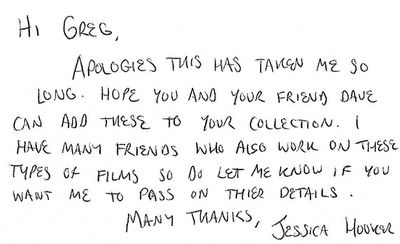 Hi GREG,
APOLOGIES THIS HAS TAKEN ME SO
LONG. HOPE YOU AND YOUR FRIEND DAVE
CAN ADD THESE TO YOUR COLLECTION. I
HAVE MANY FRIENDS WHO ALSO WORK ON THESE
TYPES OF FILMS SO DO LET ME KNOW IF YOU
WANT ME TO PASS ON THIER DETAILS.
MANY THANKS, JESSICA HOOKER